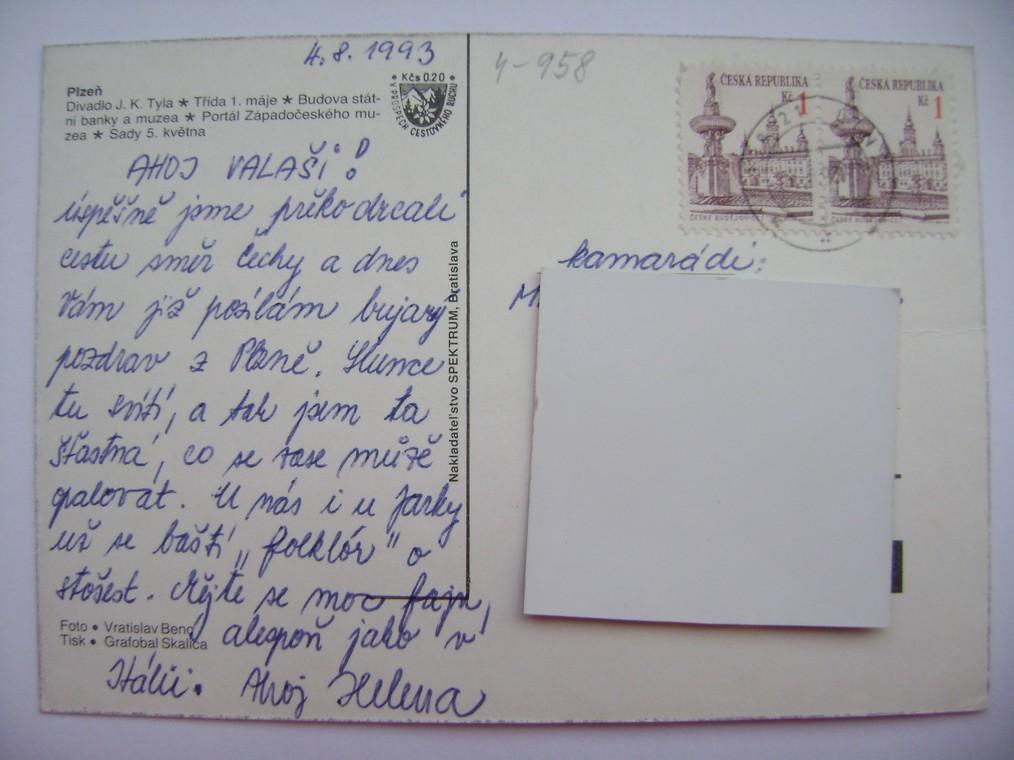 4.8.1993
4-958
Plzeň
Divadlo J. K. Tyla ★ Třída 1. máje ★ Budova stát-
ní banky a muzea ★ Portál Západočeského mu-
zea ★ Sady 5. května
• Kčs 0.20 •
V PROSPĚCH CESTOVNÉHO RUCHU
AHOJ VALAŠI!
úspěšně jsme překodrcali
cestu směr Čechy a dnes
Vám již posílám bujarý
pozdrav z Plzně. Slunce
tu svítí, a tak jsem ta
šťastná, co se zase může
opalovat. U nás i u Jarky
už se baští "folklór" o
stošest. Mějte se moc fajn,
alespoň jako v
Itálii. Ahoj Helena
Foto • Vratislav Beng
Tisk • Grafobal Skalica
Nakladateľstvo SPEKTRUM, Bratislava
ČESKÁ REPUBLIKA
Kč 1
ČESKÉ BUDĚJOVICE
ČESKÁ REPUBLIKA
Kč 1
ČESKÉ BUDĚJOVICE
kamarádi:
M